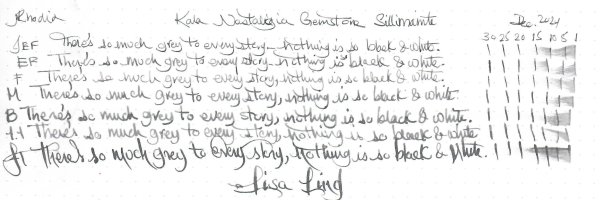 Rhodia Kala Nostalgia Gemstone Sillimanite Dec. 2024
30 25 20 15 10 5 1
JEF There's so much grey to every story – nothing is so black & white.
EF There's so much grey to every story – nothing is so black & white.
F There's so much grey to every story, nothing is so black & white.
M There's so much grey to every story, nothing is so black & white.
B There's so much grey to every story, nothing is so black & white.
1.1 There's so much grey to every story, nothing is so black & white
There's so much grey to every story, nothing is so black & white.
Lisa Ling